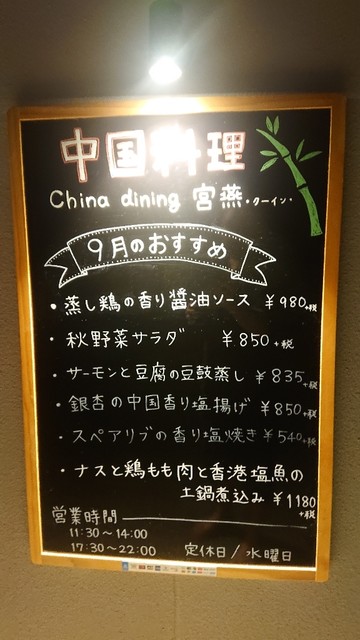 中国料理
China dining 宮燕・クーイン・
9月のおすすめ
・蒸し鶏の香り醤油ソース ¥980+税
・秋野菜サラダ ¥850+税
・サーモンと豆腐の豆鼓蒸し ¥835+税
・銀杏の中国香り塩揚げ ¥850+税
・スペアリブの香り塩焼き ¥540+税
・ナスと鶏もも肉と香港塩魚の
土鍋煮込み ¥1180
+税
営業時間
11:30~14:00
17:30~22:00 定休日/水曜日